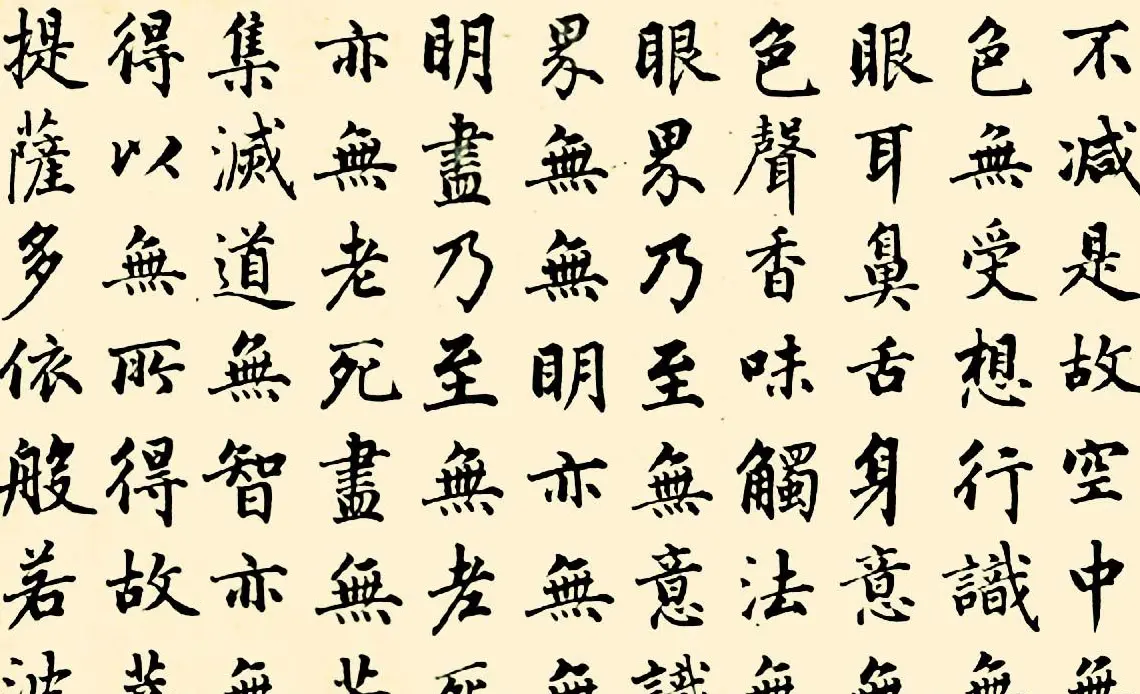 不减是故空中無
色無受想行識無
眼耳鼻舌身意無
色聲香味觸法無
眼界乃至無意識
界無無明亦無無
明盡乃至無老死
亦無老死盡無苦
集滅道無智亦無
得以無所得故菩
提薩多依般若波